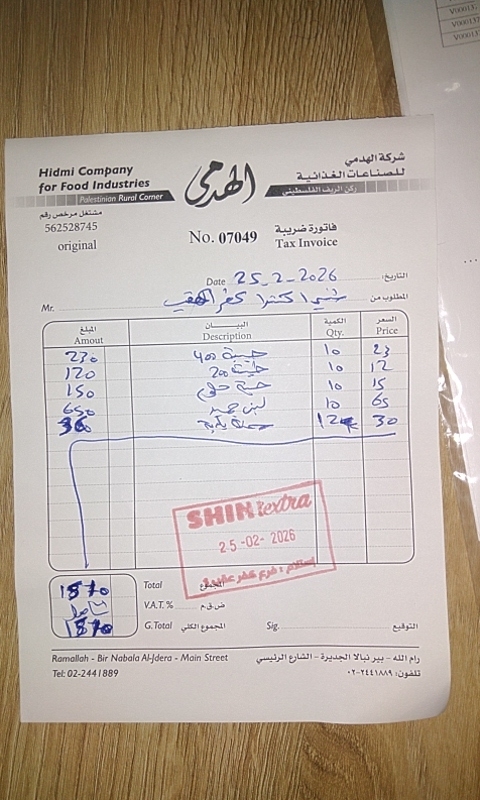 Hidmi Company
for Food Industries
Palestinian Rural Corner
الهدمي
شركة الهدمي
للصناعات الغذائية
ركن الريف الفلسطيني
مشتغل مرخص رقم
562528745
original
No. 07049
فاتورة ضريبة
Tax Invoice
Date 25-2-2026 التاريخ:
Mr. شني اكسترا كفر عقب المطلوب من
المبلغ البيــــــان الكمية السعر
Amout Description Qty. Price
230 400 10 23
120 200 10 12
150 10 15
650 10 65
12 30
SHINI extra
25-02-2026
إستلام : فرع كفر عقب
1510 Total المجموع
V.A.T. % ض.ق.م
1510 G.Total المجموع الكلي Sig. التوقيع
Ramallah - Bir Nabala Al-Jdera - Main Street
رام الله - بير نبالا الجديرة - الشارع الرئيسي
Tel: 02-2441889
تلفون: ٢٤٤١٨٨٩-٠٢
V000137
V00013